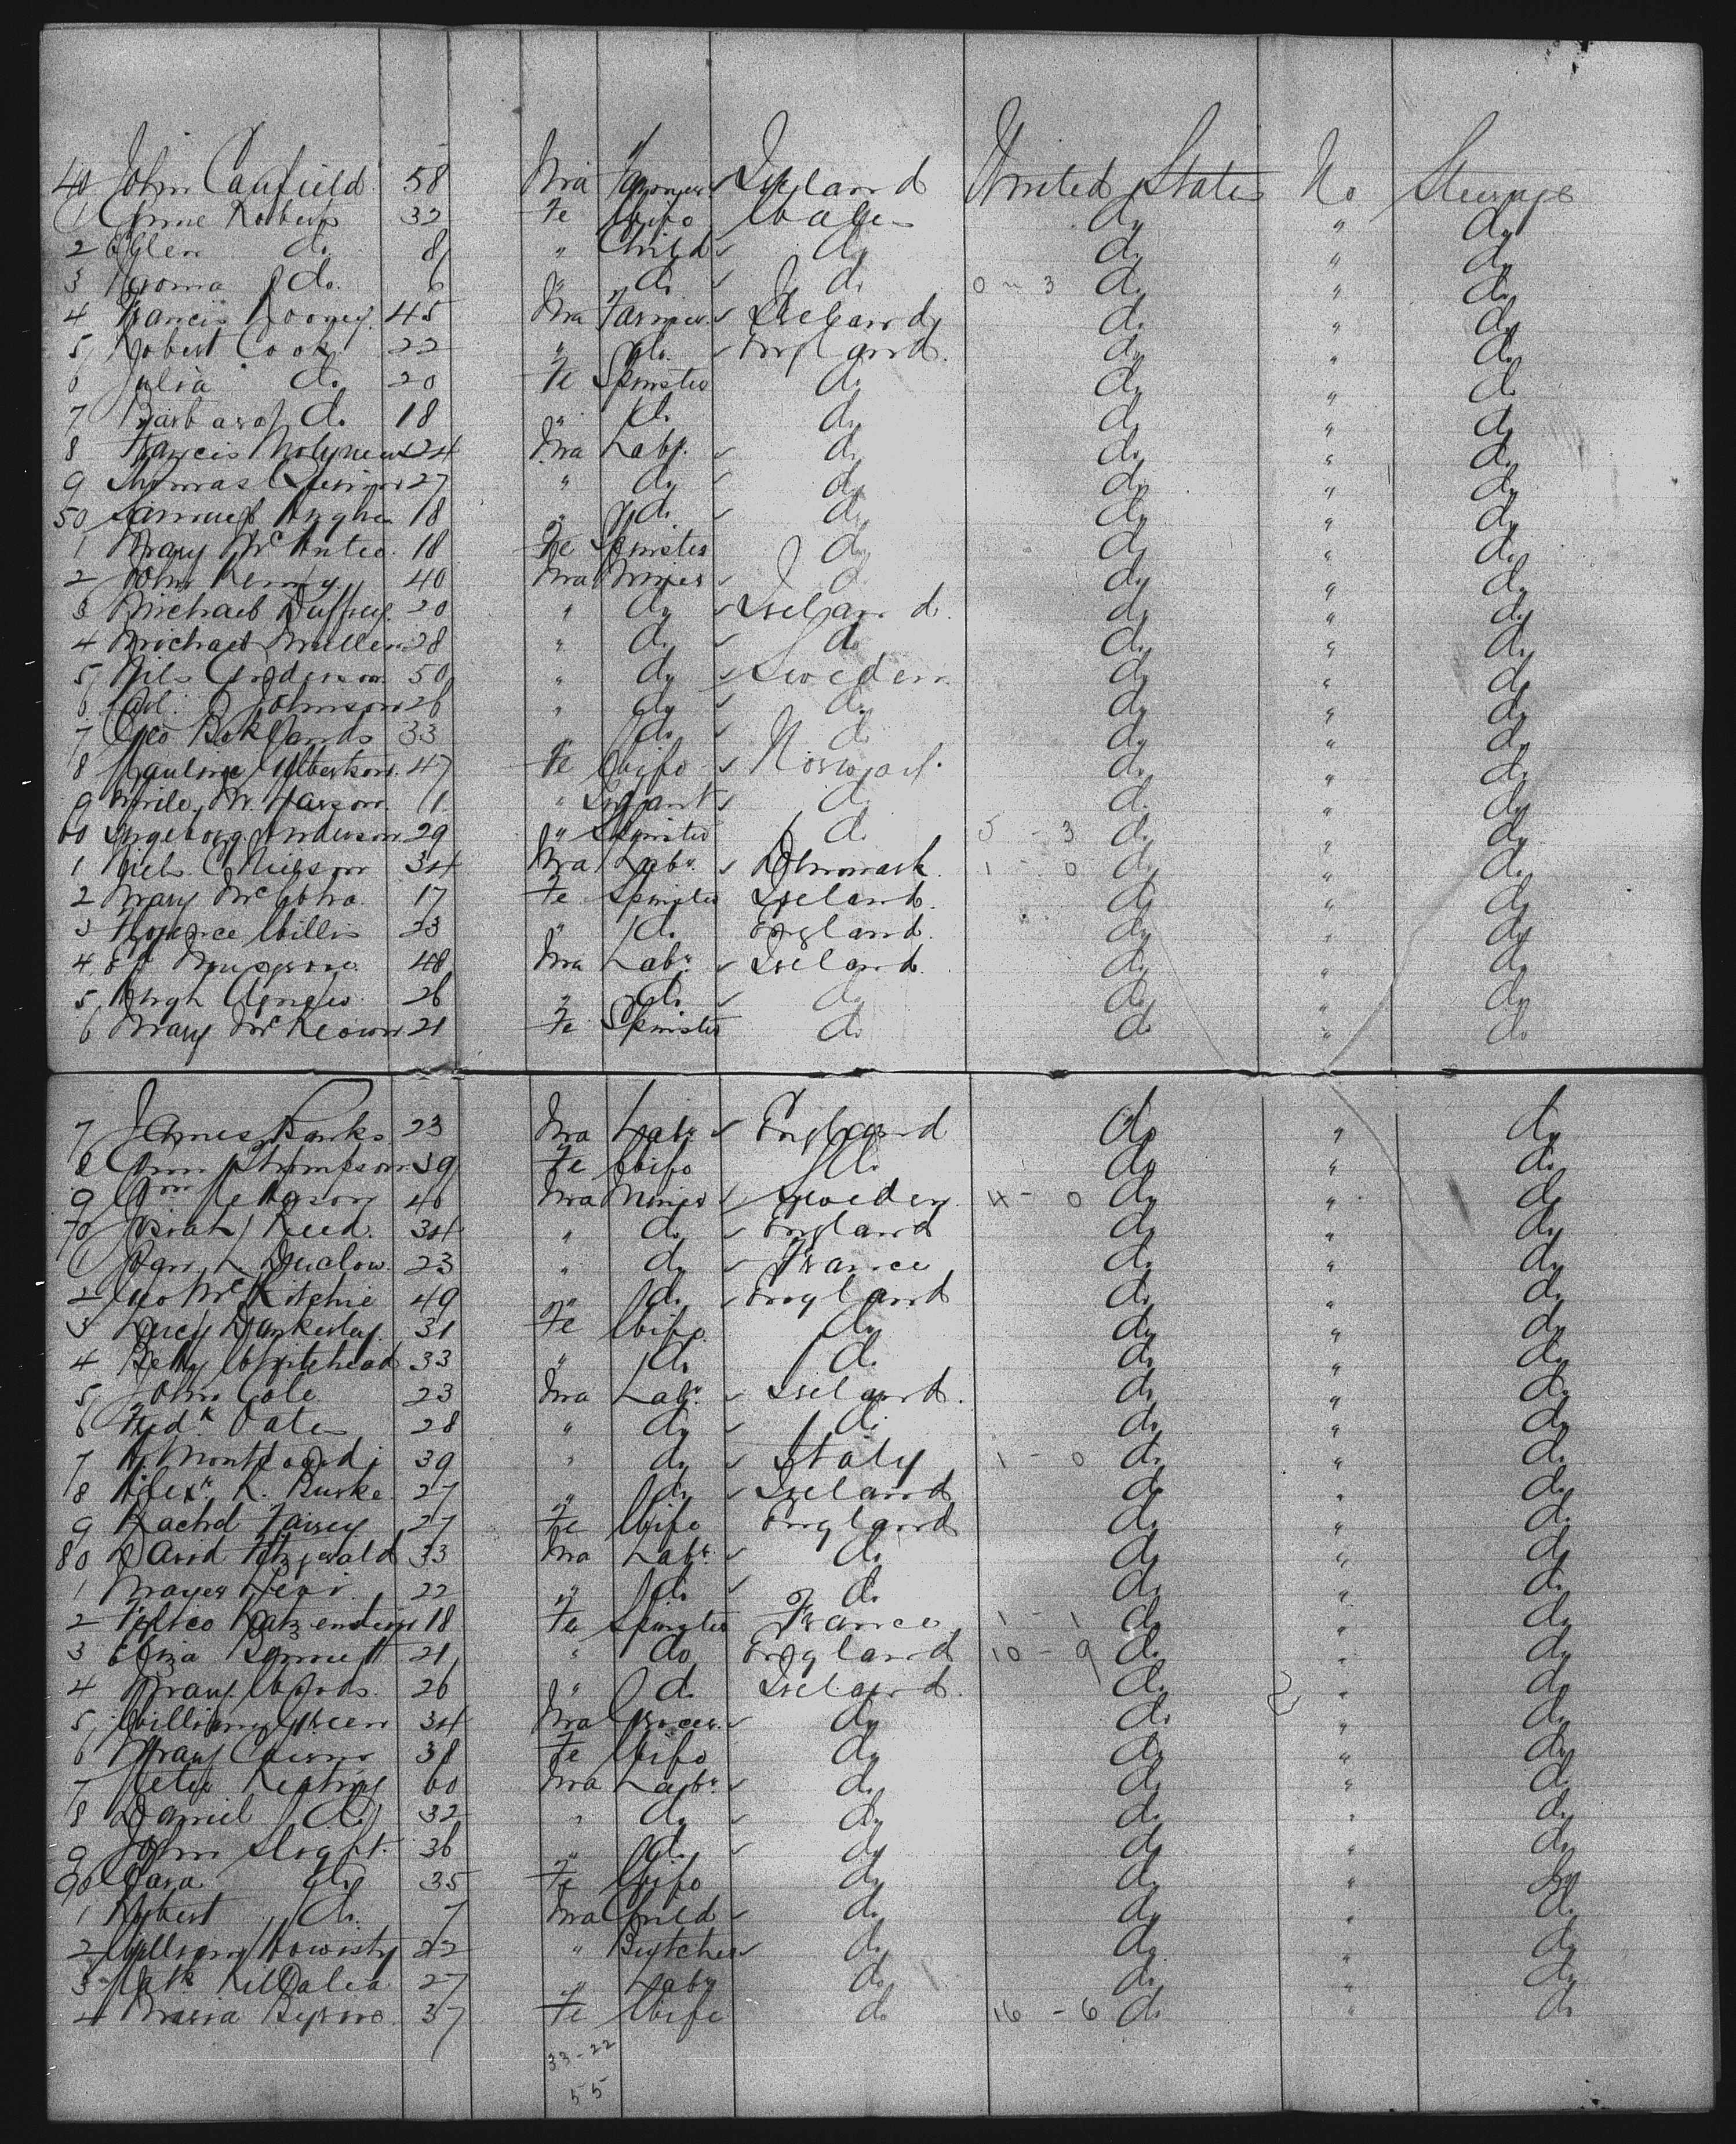 40 John Caufield 58 Ma Farmer Ireland United States No Steerage
1 Anne Roberts 32 Fe Wife Wales do " do
2 Ellen do 8 " Child do do " do
3 do 6 " do do 0 - 3 do " do
4 Francis Rooney 45 Ma Farmer Ireland do " do
5 Robert Cook 22 " do England do " do
6 Julia do 20 Fe Spinster do do " do
7 Barbara do 18 " do do do " do
8 Francis Molyneux 24 Ma Labr do do " do
9 Thomas 27 " do do do " do
50 Samuel Hughes 18 " do do do " do
1 Mary McEntee 18 Fe Spinster do do " do
2 John Kenny 40 Ma Miner do do " do
3 Michael Duffey 20 " do Ireland do " do
4 Michael Mullen 28 " do do do " do
5 Nils Anderson 50 " do Sweden do " do
6 Johnson 26 " do do do " do
7 33 " do do do " do
8 47 Fe Wife Norway do " do
9 11 " Infant do do " do
60 Ingeborg Anderson 29 " Spinster do 5 - 3 do " do
1 Niels C Nielson 34 Ma Labr Denmark 1 - 0 do " do
2 Mary 17 Fe Spinster Ireland do " do
3 Florence Willis 23 " do England do " do
4 Musgrove 48 Ma Labr Ireland do " do
5 Hugh Agnew 26 " do do do " do
6 Mary McKeown 21 Fe Spinster do do " do
7 James Banks 23 Ma Labr England do " do
8 Ann Thompson 39 Fe Wife do do " do
9 46 Ma Miner Sweden 4 - 0 do " do
70 Josiah Reed 34 " do England do " do
1 Duclow 23 " do France do " do
2 Geo McRitchie 49 " do England do " do
3 Lucy Dankerley 31 Fe Wife do do " do
4 Betty Whitehead 33 " do do do " do
5 John Cole 23 Ma Labr Ireland do " do
6 Fredk Oates 28 " do do do " do
7 39 " do Italy 1 - 0 do " do
8 Alexr R. Burke 27 " do Ireland do " do
9 Rachel Fairey 27 Fe Wife England do " do
80 David Fitzgerald 33 Ma Labr do do " do
1 Mayer Levi 22 " do do do " do
2 Katzenstein 18 Fe Spinster France 1 - 1 do " do
3 Eliza Bennett 21 " do England 10 - 9 do " do
4 Mary Woods 26 " do Ireland do " do
5 William Green 34 Ma Grocer do do " do
6 Mary Cairns 38 Fe Wife do do " do
7 Peter Keating 60 Ma Labr do do " do
8 Daniel do 32 " do do do " do
9 John Slight 36 " do do do " do
90 Clara do 35 Fe Wife do do " do
1 Robert do 7 Ma Child do do " do
2 William 22 " Butcher do do " do
3 Patk Kildalea 27 " Labr do do " do
4 Maria Byrne 37 Fe Wife do 16 - 6 do " do
33-22
55